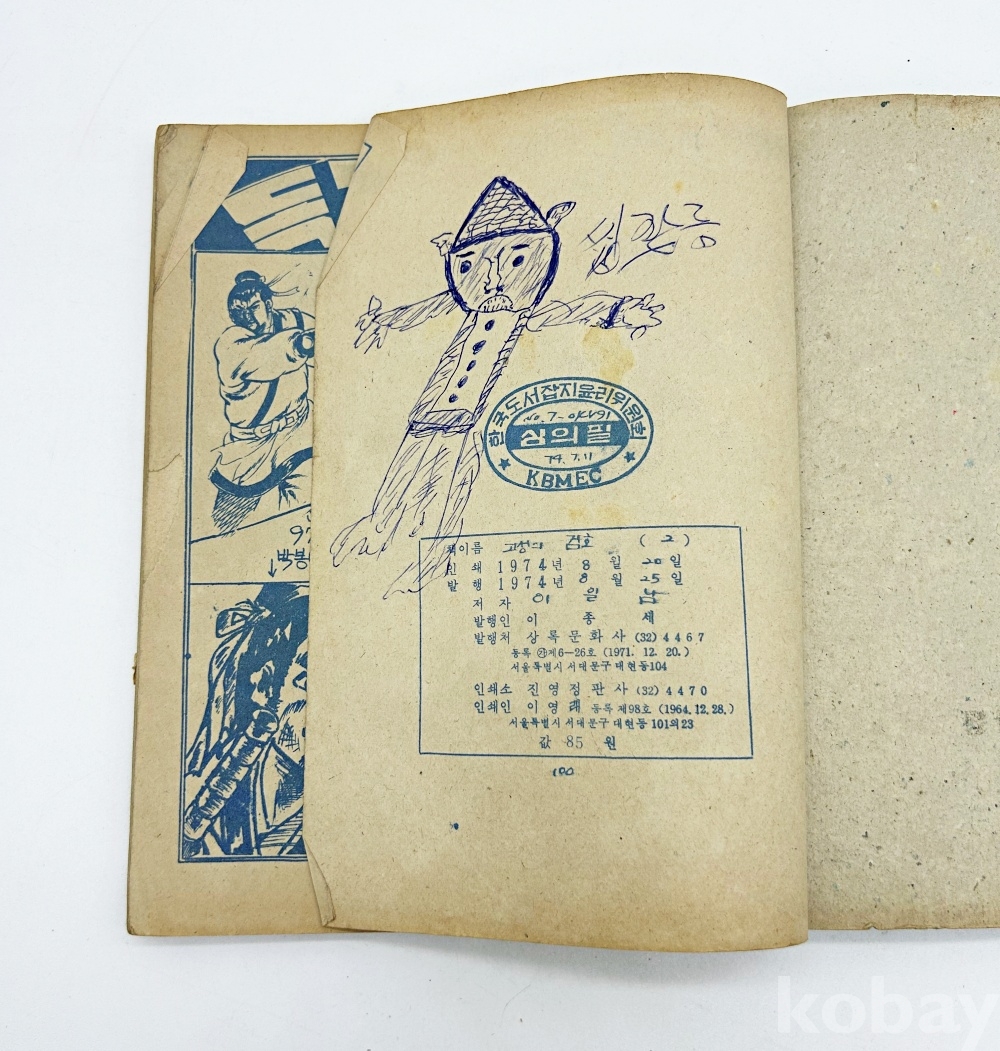 한국도서잡지윤리위원회
No. 7-
심의필
74. 7. 11
KBMEC
책이름 고성의 검호 (2)
인 쇄 1974년 8 월 20일
발 행 1974년 8 월 25일
저 자 이 일 남
발행인 이 종 세
발행처 상록문화사 (32) 4467
등록 ㉑제6—26호 (1971. 12. 20.)
서울특별시 서대문구 대현동104
인쇄소 진영정판사 (32) 4470
인쇄인 이영래 등록 제98호 (1964.12.28.)
서울특별시 서대문구 대현동 101의23
값 85 원
100
kobay